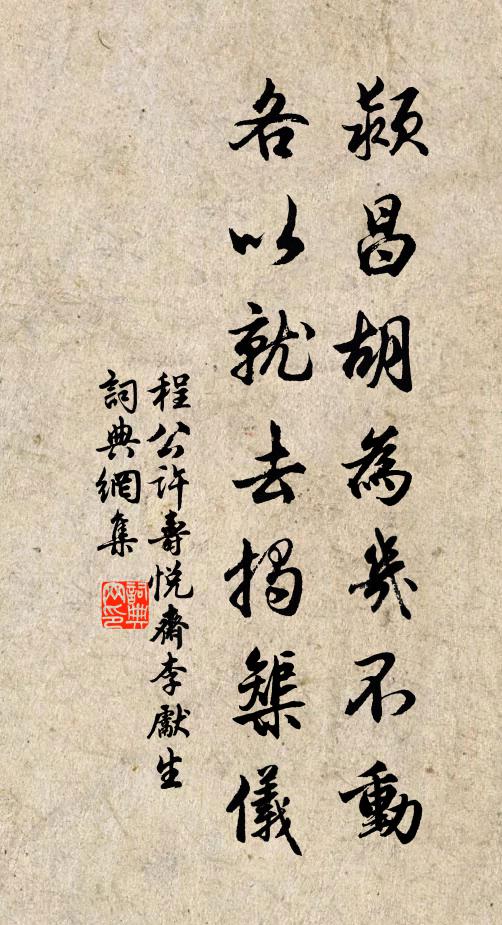 潁昌胡為歲不動
各以就去揭榘儀
程公許壽悅齋李獻生
詞典網集
詞典網印